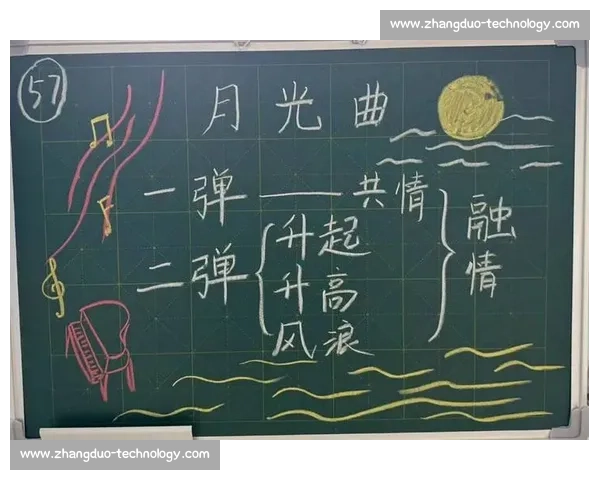 www.zhangduo-technology.com
57
月光曲
一弹——共情
二弹{升起
升高
风浪
}融情
www.zhangduo-technology.com